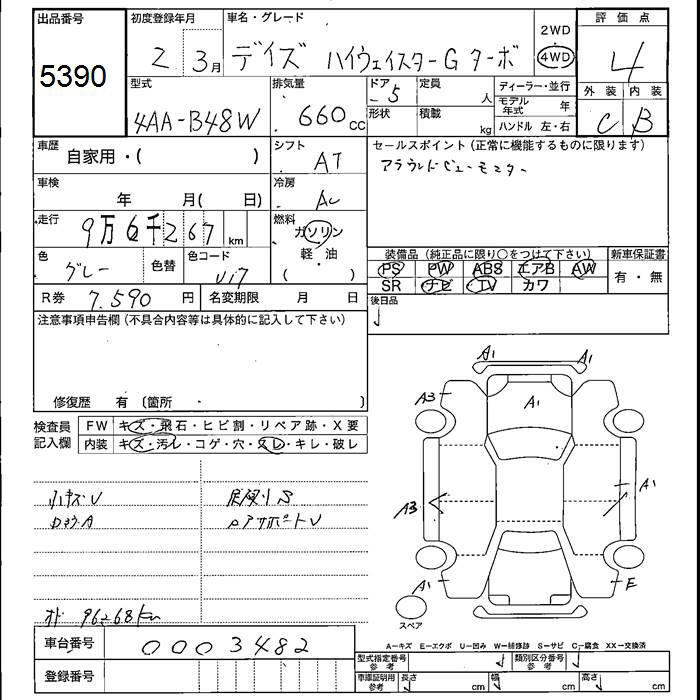 出品番号
5390
初度登録年月
2 3月
車名・グレード
デイズ ハイウェイスターG ターボ
2WD
4WD
評価点
4
外装 内装
C B
型式
4AA-B48W
排気量
660cc
ドア 5
形状
定員 人
積載 kg
ディーラー・並行
モデル年式 年
ハンドル 左・右
車歴
自家用・( )
シフト
AT
セールスポイント(正常に機能するものに限ります)
アラウンドビューモニター
車検
年 月( 日)
冷房
AC
走行
9万6千267km
燃料
ガソリン
軽・油
( )
色
グレー
色替
色コード
装備品(純正品に限り○をつけて下さい)
新車保証書
PS PW ABS エアB AW
SR ナビ TV カワ
有・無
R券 7.590円
名変期限 月 日
後日品
注意事項申告欄(不具合内容等は具体的に記入して下さい)
修復歴 有(箇所 )
検査員
記入欄
FW キズ・飛石・ヒビ割・リペア跡・X要
内装 キズ・汚レ・コゲ・穴・スレ・キレ・破レ
小キズU
オド 96268km
A1 A1
A3
A1
A3
A1
A1
E
スペア
A-キズ E-エクボ U-凹み W-補修跡 S-サビ C-腐食 XX-交換済
車台番号
0003482
登録番号
型式指定番号
参考
類別区分番号
参考
車庫証明用
参考
長さ cm
幅 cm
高さ cm